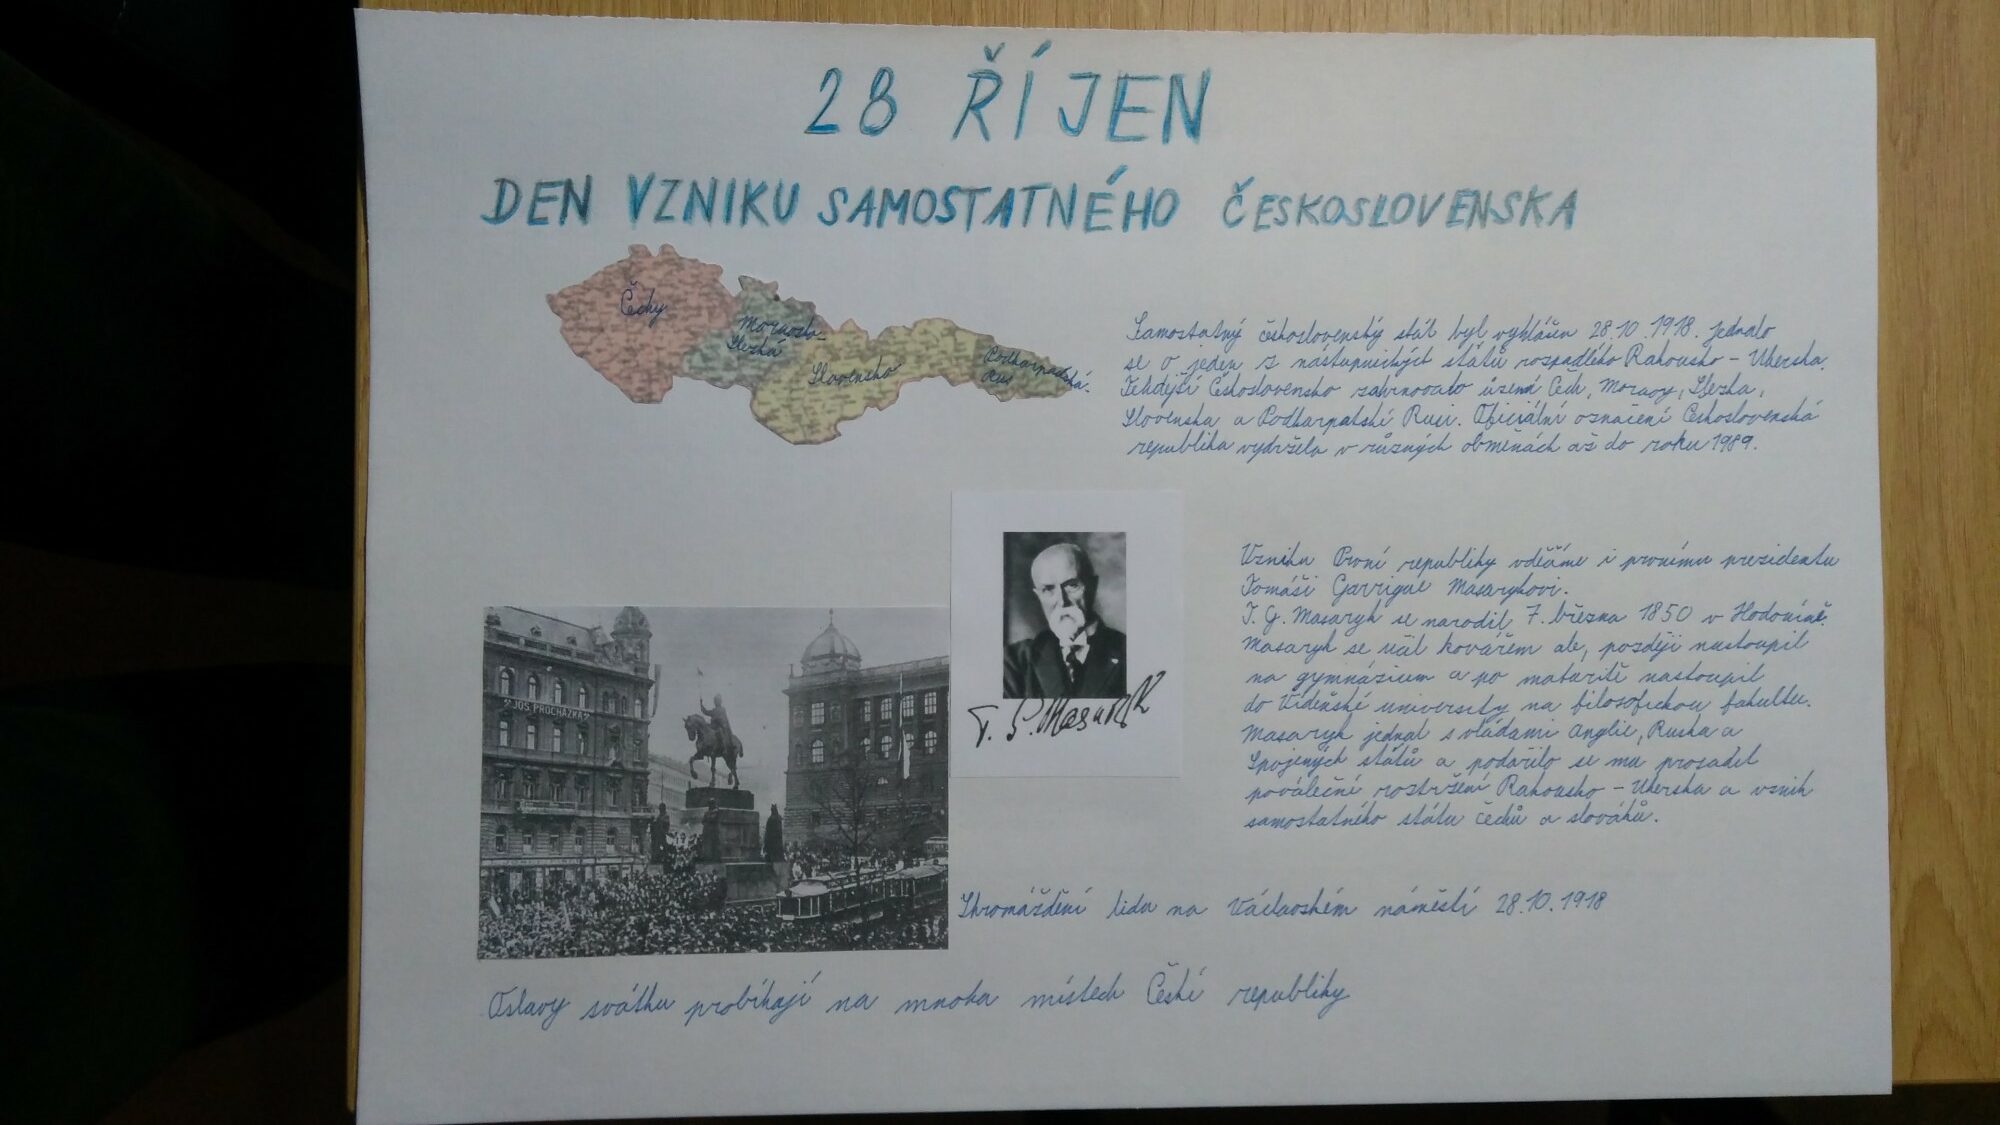 28 ŘÍJEN
DEN VZNIKU SAMOSTATNÉHO ČESKOSLOVENSKA
Čechy
Moravsko-
Slezská
Slovensko
Podkarpatská
Rus
Samostatný československý stát byl vyhlášen 28.10.1918. Jednalo
se o jeden z nástupnických států rozpadlého Rakousko - Uherska.
Tehdejší Československo zahrnovalo území Čech, Moravy, Slezka,
Slovenska a Podkarpatské Rusi. Oficiální označení Československá
republika vydržela v různých obměnách až do roku 1989.
Vzniku První republiky vděčíme i prvnímu prezidentu
Tomáši Garrigue Masarykovi.
T. G. Masaryk se narodil 7. března 1850 v Hodoníně.
Masaryk se učil kovářem ale, později nastoupil
na gymnázium a po maturitě nastoupil
do Vídeňské university na filosofickou fakultu.
Masaryk jednal s vládami Anglie, Ruska a
Spojených států a podařilo se mu prosadil
pováleční roztržení Rakousko - Uherska a vznik
samostatného státu čechů a slováků.
T. G. Masaryk
JOS. PROCHÁZKA
Shromáždění lidu na Václavském náměstí 28.10.1918
Oslavy svátku probíhají na mnoha místech České republiky